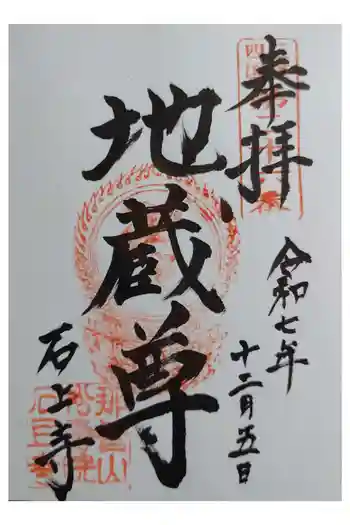 奉拝
令和七年
十二月五日
地蔵尊
石上寺